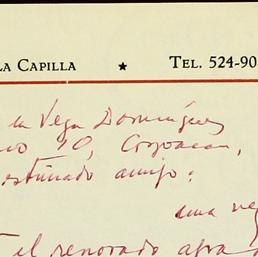 LA CAPILLA ★ TEL. 524-90
la Vega Domínguez
10, Coyoacan,
estimado amigo:
una vez
el renovado